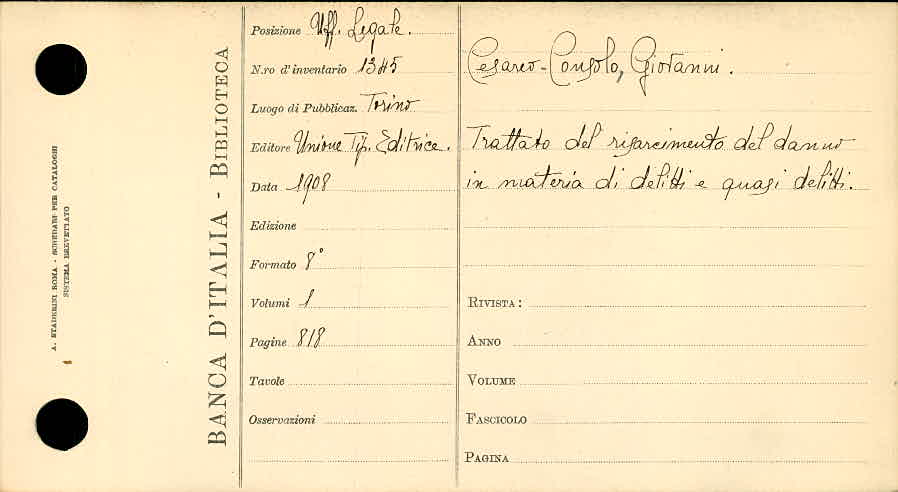 A. STADERINI ROMA - SCHEDARI PER CATALOGHI
SISTEMA BREVETTATO
BANCA D'ITALIA - BIBLIOTECA
Posizione Uff. Legale.
N.ro d'inventario 1345
Luogo di Pubblicaz. Torino
Editore Unione Tip. Editrice.
Data 1908
Edizione
Formato 8°
Volumi 1
Pagine 818
Tavole
Osservazioni
Cesareo-Consolo, Giovanni.
Trattato del risarcimento del danno
in materia di delitti e quasi delitti.
RIVISTA:
ANNO
VOLUME
FASCICOLO
PAGINA